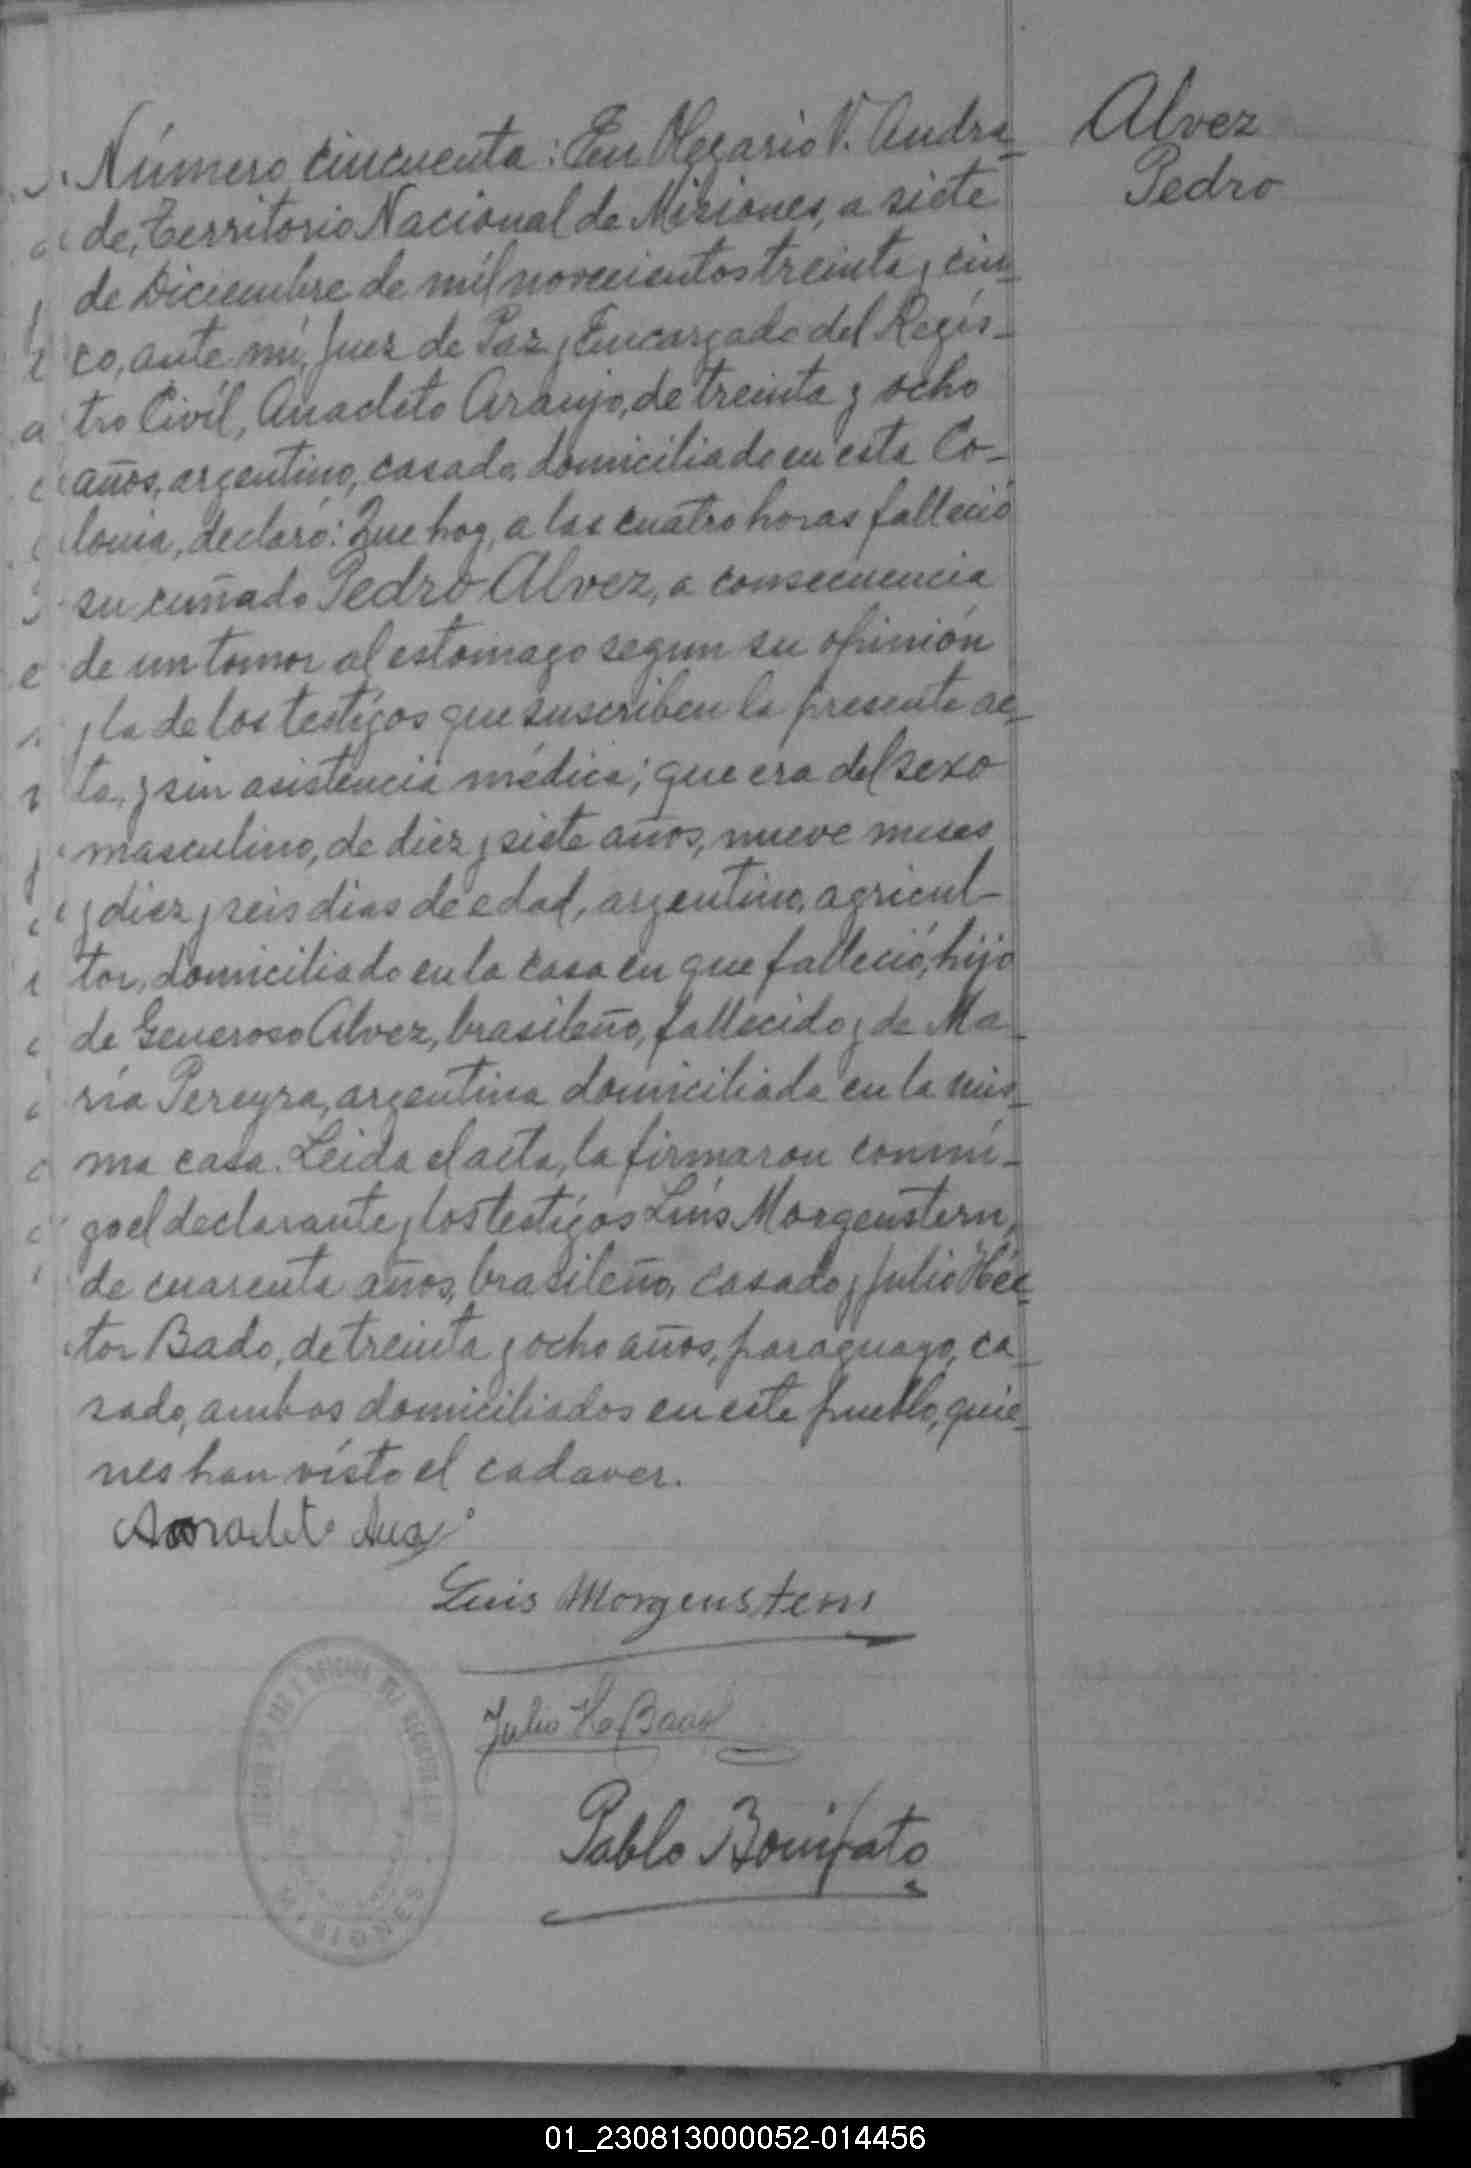 Alvez
Pedro
Número cincuenta: En Olegario V. Andra-
de, Territorio Nacional de Misiones, a siete
de Diciembre de mil novecientos treinta y cin-
co, ante mí, Juez de Paz y Encargado del Regis-
tro Civíl, Anacleto Araujo, de treinta y ocho
años, argentino, casado, domiciliado en esta Co-
lonia, declaró: Que hoy, a las cuatro horas falleció
su cuñado Pedro Alvez, a consecuencia
de un tomor al estomago segun su opinión
y la de los testígos que suscriben la presente ac-
ta, y sin asistencia médica; que era del sexo
masculino, de diez y siete años, nueve meses
y diez y seis dias de edad, argentino, agricul-
tor, domiciliado en la casa en que falleció, hijo
de Generoso Alvez, brasileño, fallecido y de Ma-
ría Pereyra, argentina domiciliada en la mis-
ma casa. Leida el acta, la firmaron conmi-
go el declarante y los testígos Luís Morgenstern,
de cuarenta años, brasileño, casado y Julio Héc-
tor Bado, de treinta y ocho años, paraguayo, ca-
sado, ambos domiciliados en este pueblo, quie-
nes han vísto el cadaver.
Luis Morgenstern
Julio H. Bado
Pablo Bonifato
MISIONES
01_230813000052-014456